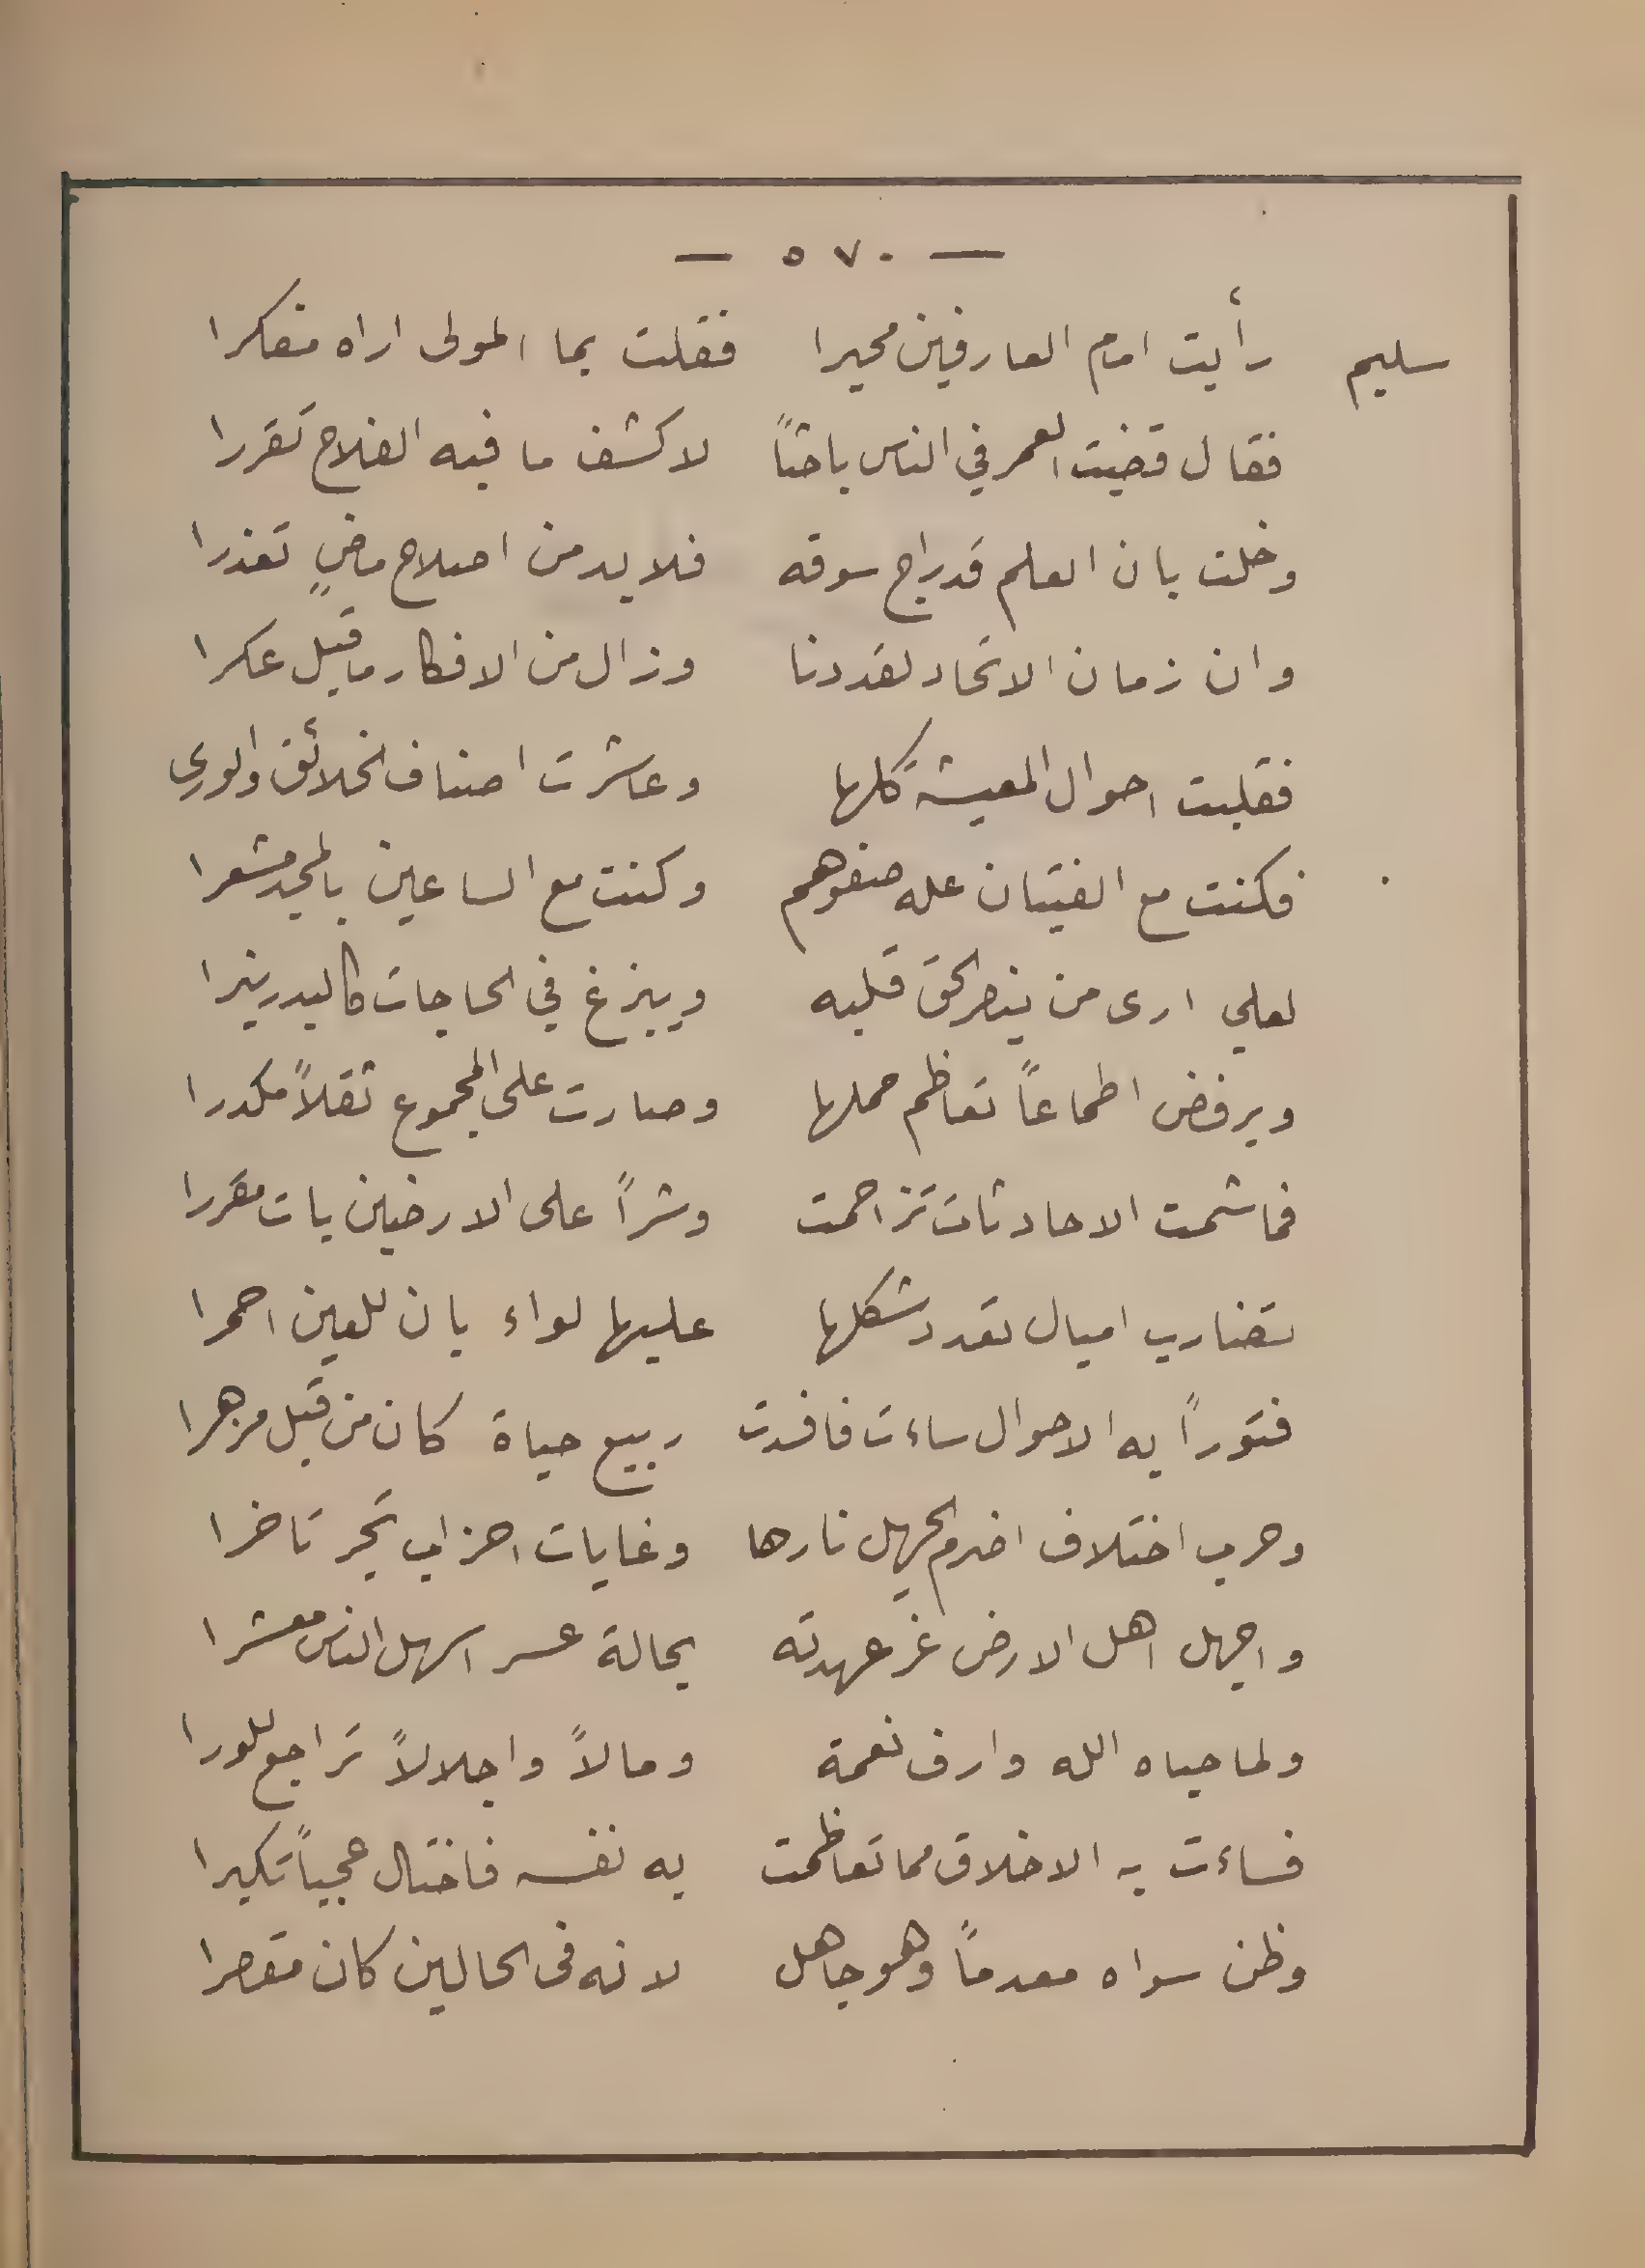 — ٥٧٠ —
سليم رأيت امام العارفين محيرا فقلت بما المولى اراه مفكرا
فقال قضيت العمر في الناس باحثاً لاكشف ما فيه الفلاح تقررا
وخلت بان العلم قد راج سوقه فلا بد من اصلاح ماضٍ تعذرا
وان زمان الاتحاد لقد دنا وزال من الافكار ما قيل عكرا
فقلبت احوال المعيشة كلها وعاشرت اصناف الخلائق والورى
فكنت مع الفتيان عله صفوهم وكنت مع الساعين بالمجد مشعرا
لعلي ارى من ينصر الحق قلبه ويبزغ في الحاجات كالبدر نيرا
ويرفض اطماعاً تعاظم حملها وصارت على المجموع ثقلاً مكدرا
فما شمت الا حادثات تزاحمت وشراً على الارضين بات مقررا
تضارب اميال تعدد شكلها عليها لواء بان للعين احمرا
فتوراً به الاحوال ساءت فافسدت ربيع حياة كان من قبل مزهرا
وحرب اختلاف اضرم الجهل نارها وغايات احزاب تجر تاخرا
واجهل اهل الارض غر عهدته بحالة عسر اسهل الناس معشرا
ولما حباه الله وارف نعمة ومالاً واجلالاً تراجع للورا
فساءت به الاخلاق مما تعاظمت به نفسه فاختال عجباً تكبرا
وظن سواه معدماً وهو جاهل لانه فى الحالين كان مقصرا